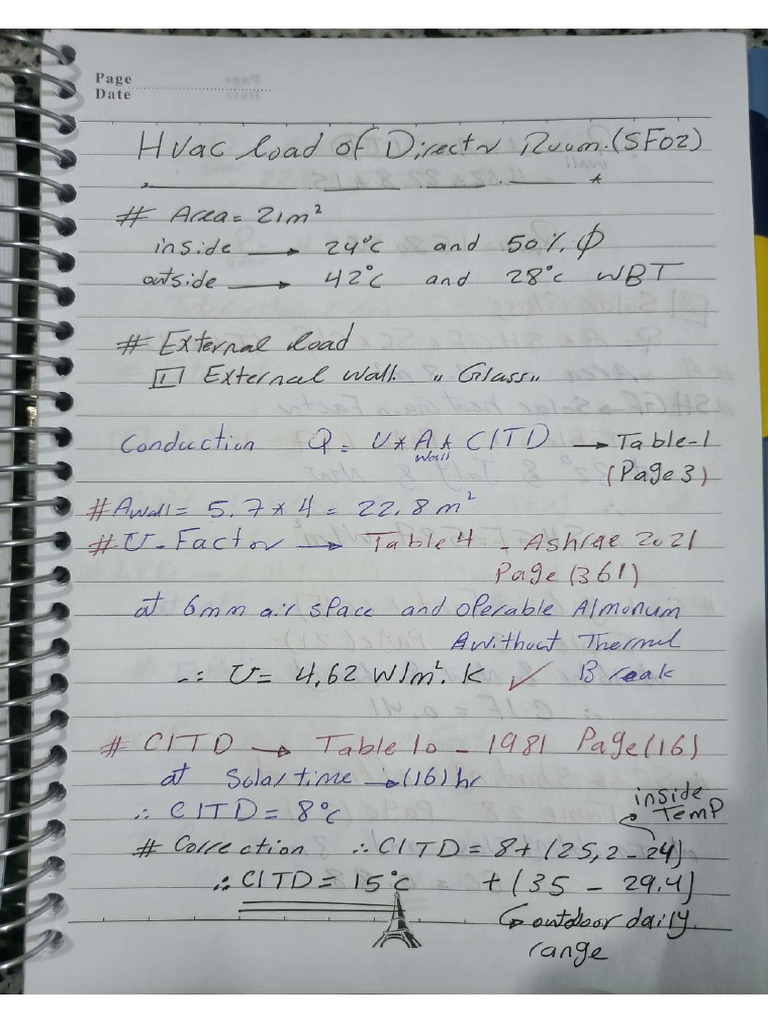 Page
Date
Hvac load of Director Room.(SF02)
# Area = 21m²
inside → 24°c and 50% φ
outside → 42°c and 28°c WBT
# External load
1 External wall "Glass"
Conduction Q = U * A wall * ClTD → Table-1
(Page 3)
# Awall = 5.7 * 4 = 22.8 m²
# U-Factor → Table 4 - Ashrae 2021
Page (361)
at 6mm air space and operable Almonum
without Thermal
∴ U = 4,62 W/m².K ✓ Break
# ClTD → Table 10 - 1981 Page (16)
at Solar time → (16) hr
∴ ClTD = 8°c
inside
Temp
# Correction ∴ ClTD = 8 + (25,2 - 24)
∴ ClTD = 15°c + (35 - 29.4)
↳ outdoor daily
range